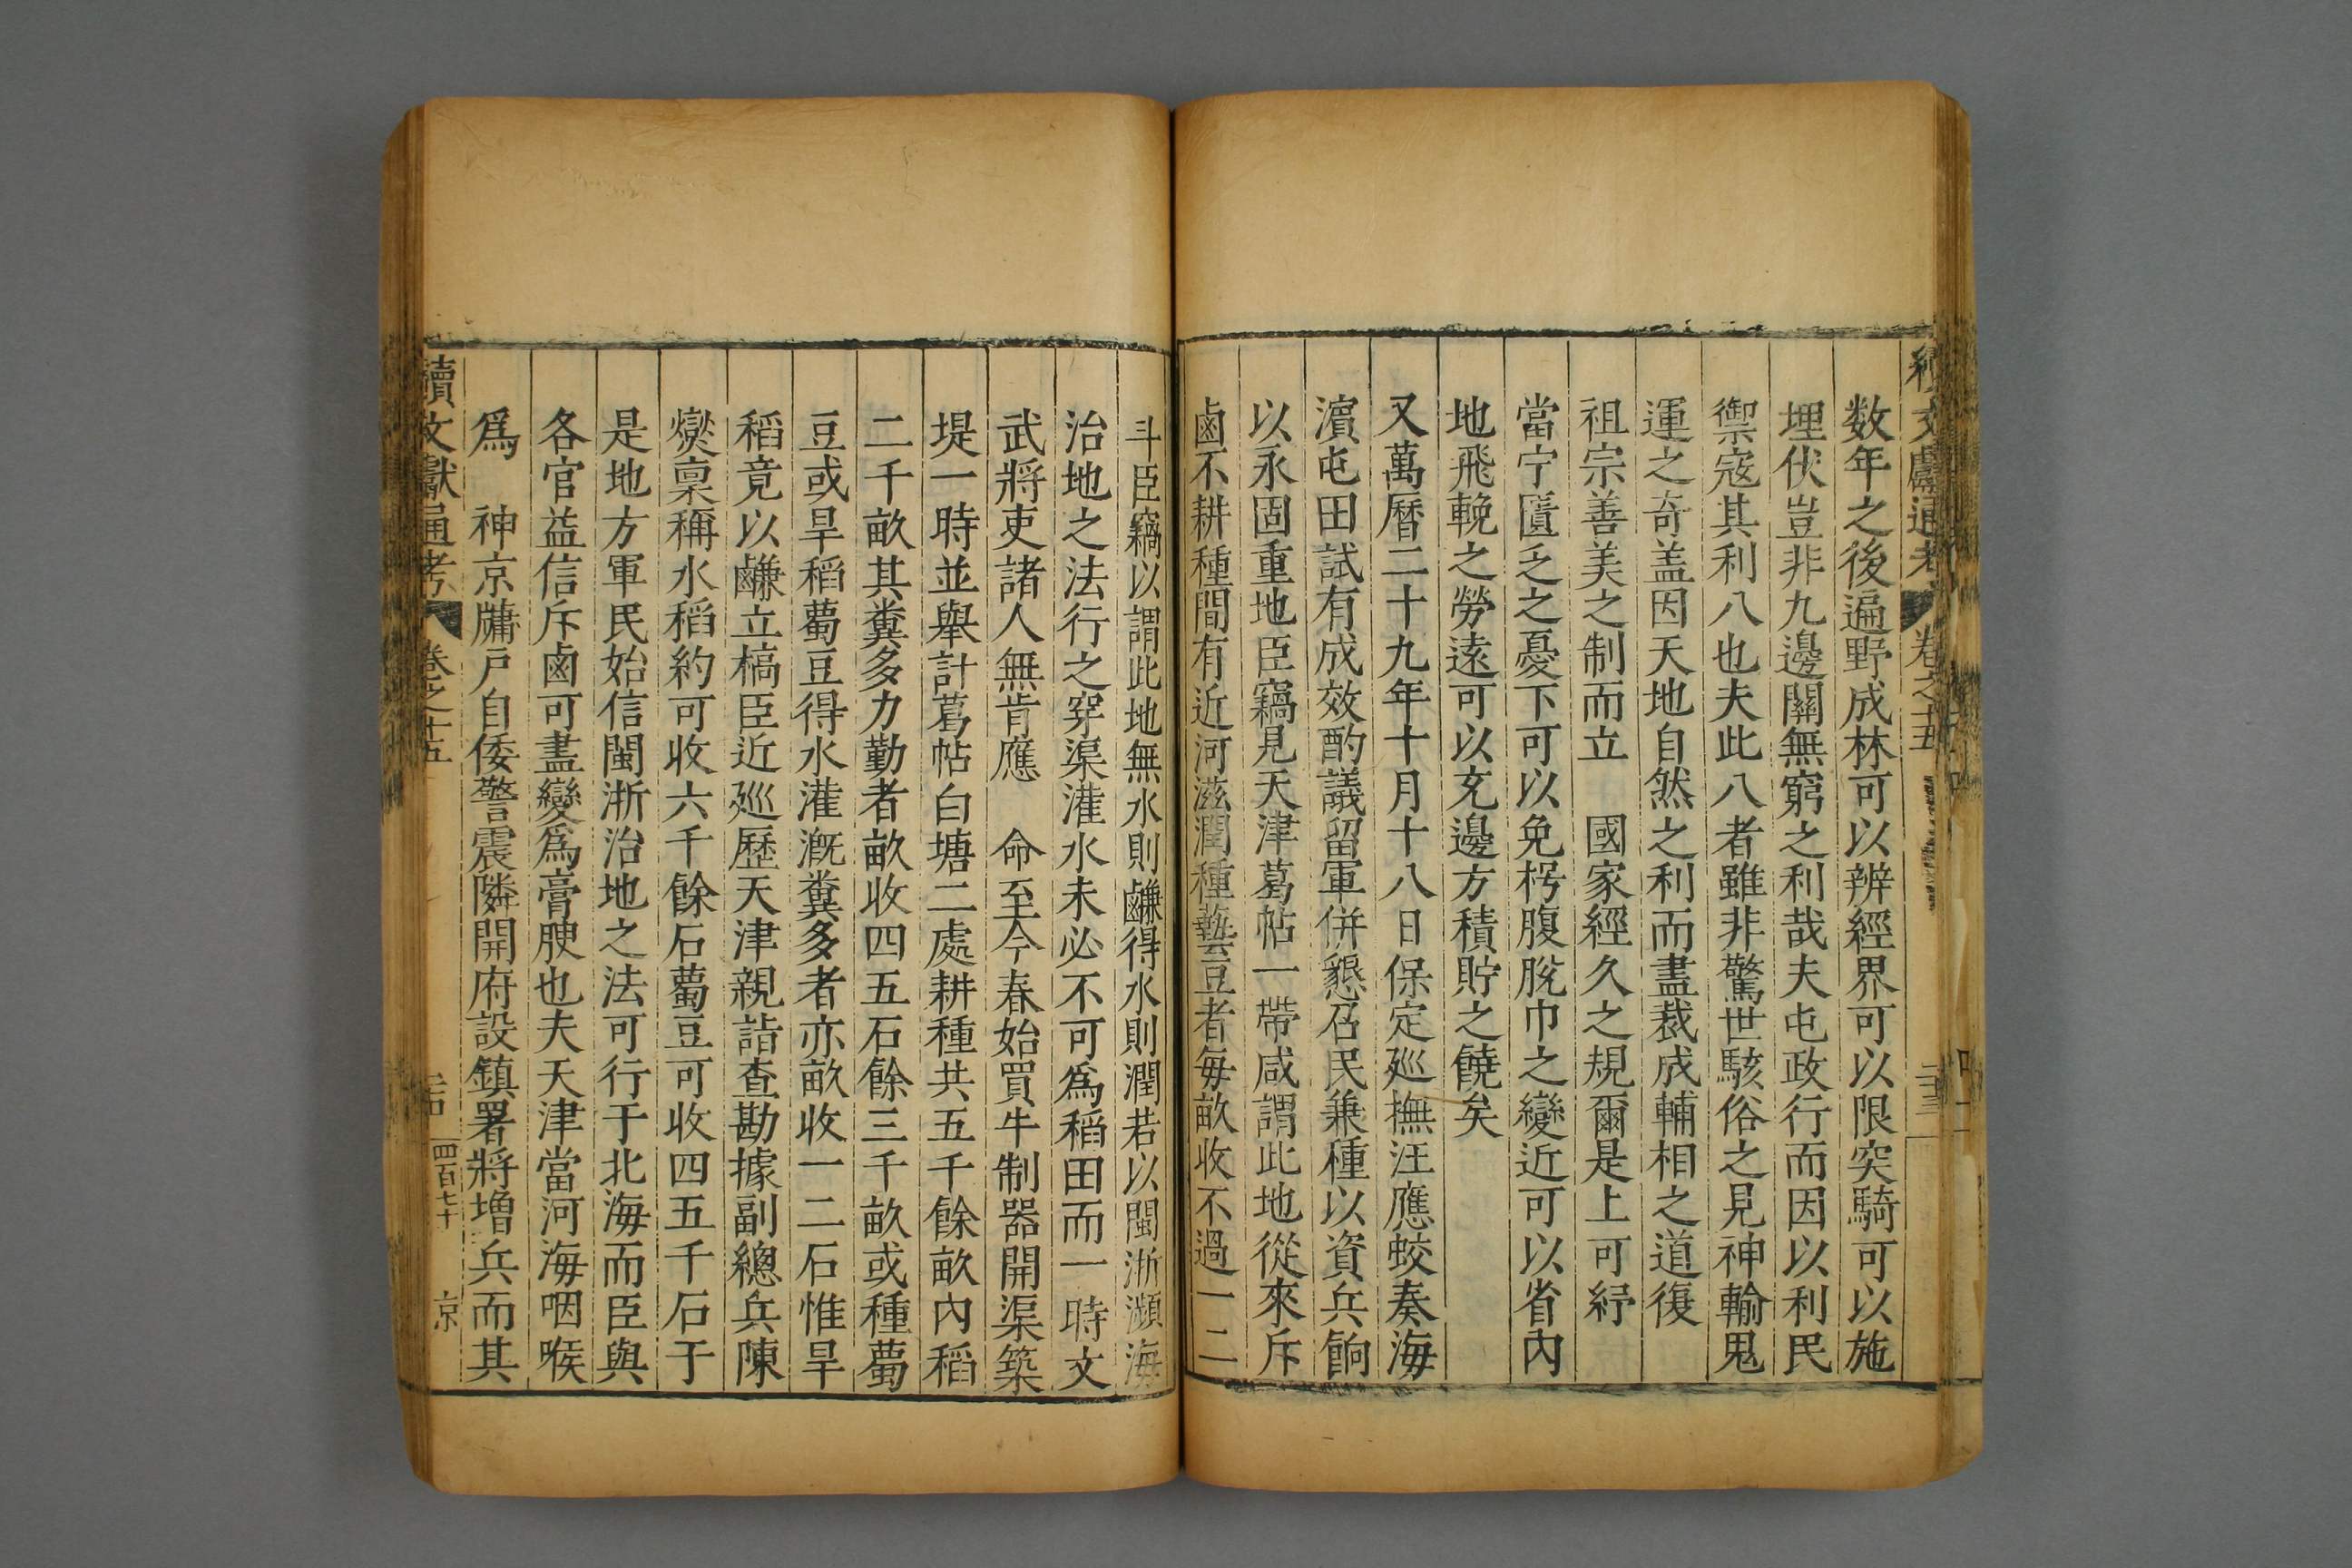 續文獻通考 卷之十五 二十三
数年之後遍野成林可以辨經界可以限突騎可以施
埋伏豈非九邊關無窮之利哉夫屯政行而因以利民
禦寇其利八也夫此八者雖非驚世駭俗之見神輸鬼
運之奇盖因天地自然之利而盡裁成輔相之道復
祖宗善美之制而立　國家經久之規爾是上可紓
當宁匱乏之憂下可以免枵腹脫巾之變近可以省內
地飛輓之勞遠可以充邊方積貯之饒矣
又萬曆二十九年十月十八日保定廵撫汪應蛟奏海
濵屯田試有成效酌議留軍併懇召民兼種以資兵餉
以永固重地臣竊見天津葛帖一帶咸謂此地從來斥
鹵不耕種間有近河滋潤種藝豆者每畝收不過一二
斗臣竊以謂此地無水則鹻得水則潤若以閩浙瀕海
治地之法行之穿渠灌水未必不可爲稻田而一時文
武將吏諸人無肯應　命至今春始買牛制器開渠築
堤一時並舉計葛帖白塘二處耕種共五千餘畝內稻
二千畝其糞多力勤者畝收四五石餘三千畝或種薥
豆或旱稻薥豆得水灌溉糞多者亦畝收一二石惟旱
稻竟以鹻立槁臣近廵歷天津親詣查勘據副總兵陳
燮稟稱水稻約可收六千餘石薥豆可收四五千石于
是地方軍民始信閩浙治地之法可行于北海而臣與
各官益信斥鹵可盡變爲膏腴也夫天津當河海咽喉
爲　神京牖戶自倭警震隣開府設鎮署將增兵而其
續文獻通考 卷之十五 二十四 四百七十 京